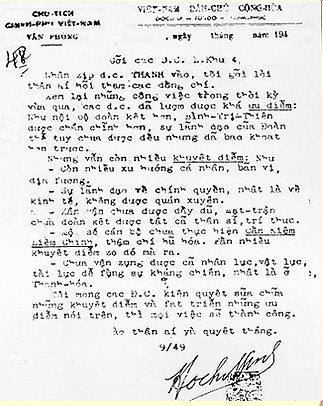 CHỦ-TỊCH
CHÍNH-PHỦ VIỆT-NAM
VĂN PHÒNG
VIỆT-NAM DÂN-CHỦ CỘNG-HÒA
ĐỘC-LẬP - TỰ-DO - HẠNH-PHÚC
, ngày tháng năm 194
48
Gởi các Đ.C. L.Khu 4,
Nhân zịp đ.c. THANH vào, tôi gởi lời
thân ái hỏi thăm các đồng chí.
Xem lại những công việc trong thời kỳ
vừa qua, các đ.c. đã lượm được khá ưu điểm:
Như nội bộ đoàn kết hơn, Bình-Trị-Thiên
được chấn chỉnh hơn, sự lãnh đạo của Đoàn
thể tuy chưa được đều nhưng đã bao khoát
hơn trước.
Nhưng vẫn còn nhiều khuyết điểm: Như
- Còn nhiều xu hướng cá nhân, bản vị,
địa fương.
- Sự lãnh đạo về chính quyền, nhất là về
kinh tế, không được quán xuyến.
- Zân vận chưa được đầy đủ, mặt-trận
chưa đoàn kết được tất cả thân sĩ, trí thức.
- Một số cán bộ chưa thực hiện Cần Kiệm
Liêm Chính, thậm chí hủ hóa. Rất nhiều
khuyết điểm zo đó mà ra.
- Chưa vận zụng được cả nhân lực, vật lực,
tài lực để fụng sự kháng chiến, nhất là ở
Thanh-hóa.
Tôi mong các Đ.C. kiên quyết sửa chữa
những khuyết điểm và fát triển những ưu
điểm nói trên, thì mọi việc sẽ thành công.
Chào thân ái và quyết thắng.
9/49
Hochiminh